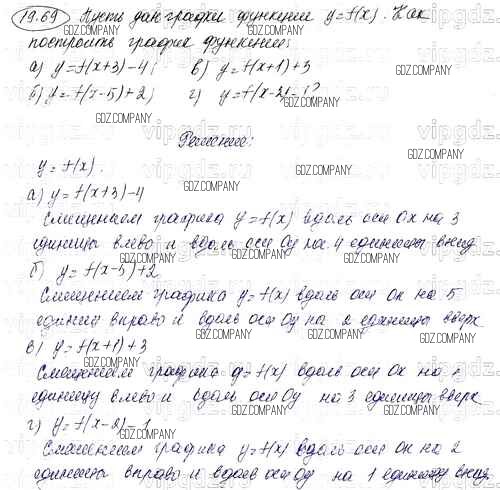 19.69 Пусть дан график функции y = f(x). Как
построить график функции:
а) y = f(x+3) - 4; в) y = f(x+1) + 3
б) y = f(x-5) + 2; г) y = f(x-2) - 1?
Решение:
y = f(x).
а) y = f(x+3) - 4
Смещением графика y = f(x) вдоль оси Ox на 3
единицы влево и вдоль оси Oy на 4 единицы вниз.
б) y = f(x-5) + 2
Смещением графика y = f(x) вдоль оси Ox на 5
единиц вправо и вдоль оси Oy на 2 единицы вверх
в) y = f(x+1) + 3
Смещением графика y = f(x) вдоль оси Ox на 1
единицу влево и вдоль оси Oy на 3 единицы вверх
г) y = f(x-2) - 1
Смещением графика y = f(x) вдоль оси Ox на 2
единицы вправо и вдоль оси Oy на 1 единицу вниз.